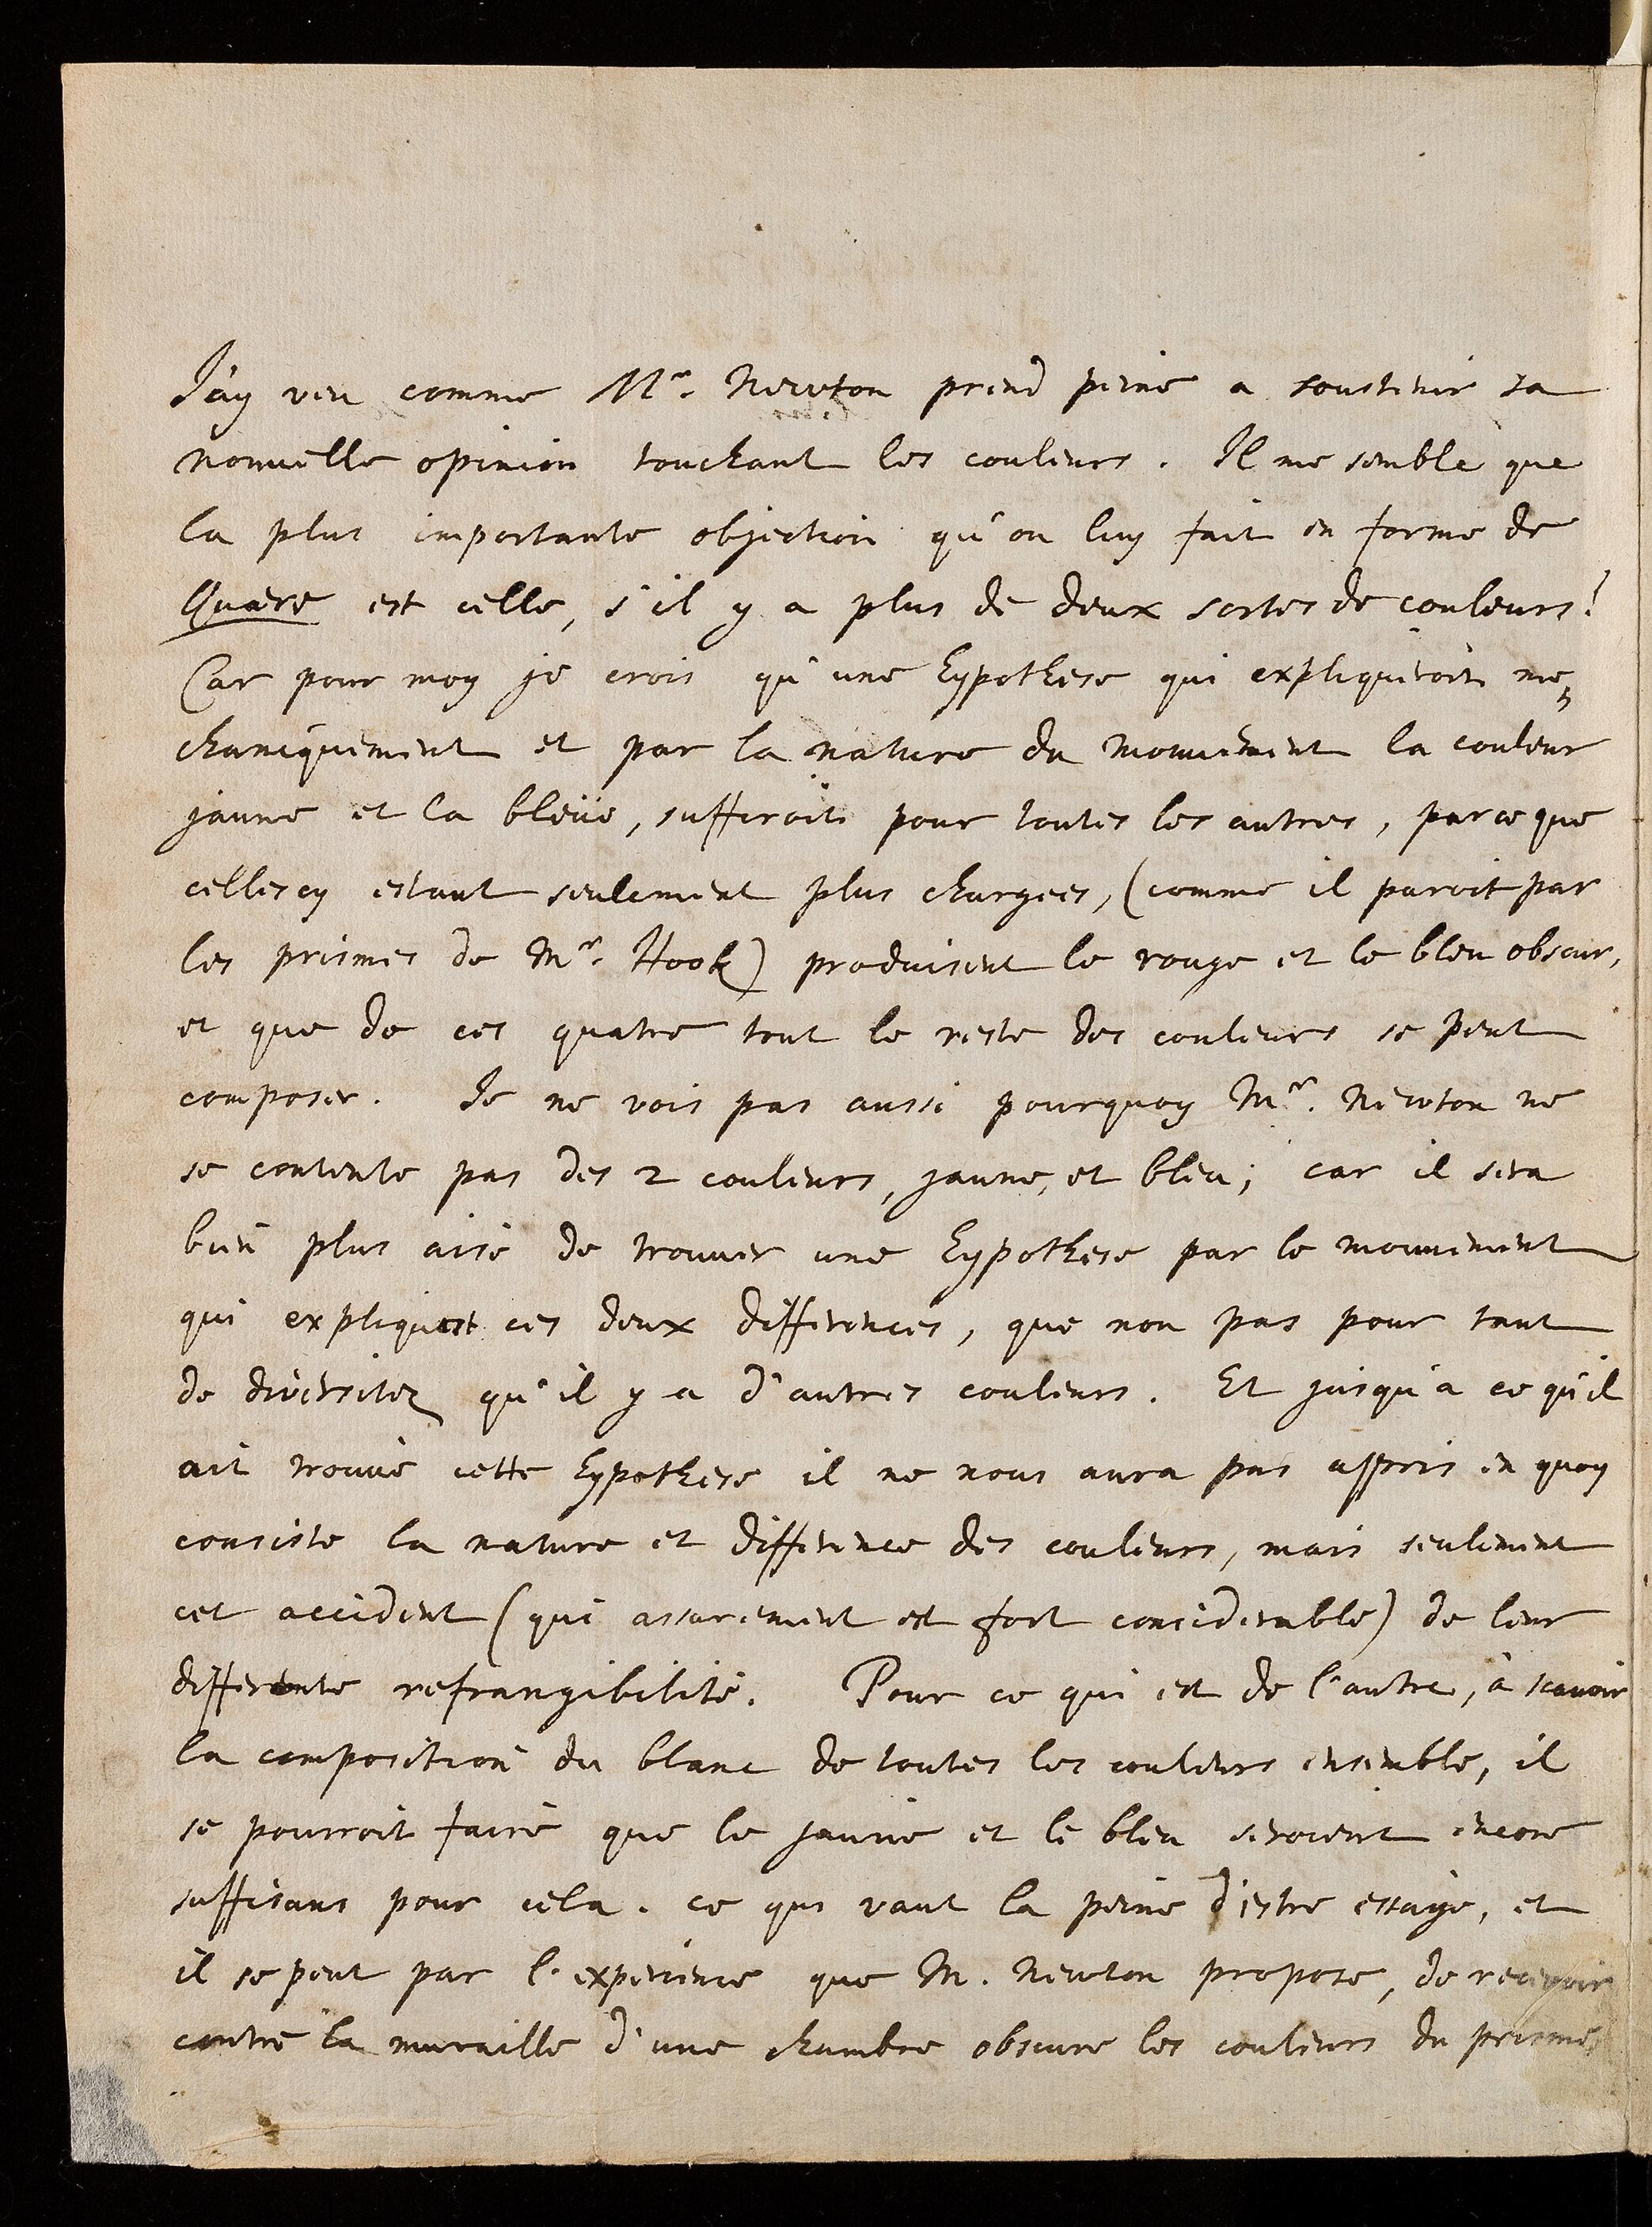 J'ay veu comme Mr. Newton prend peine a soustenir sa
nouvelle opinion touchant les couleurs. Il me semble que
la plus importante objection qu'on luy fait en forme de
Quære est celle, s'il y a plus de deux sortes de couleurs?
Car pour moy je crois qu'une hypothese qui expliqueroit me=
chaniquement et par la nature du mouvement la couleur
jaune et la bleüe, suffiroit pour toutes les autres, parce que
celles cy estant seulement plus chargees, (comme il paroit par
les prismes de Mr. Hook) produisent le rouge et le bleu obscur,
et que de ces quatre tout le reste des couleurs se peut
composer. Je ne vois pas aussi pourquoy Mr. Newton ne
se contente pas des 2 couleurs, jaune, et bleu; car il sera
bien plus aisé de trouver une hypothese par le mouvement
qui expliquast ces deux differences, que non pas pour tant
de diversitez qu'il y a d'autres couleurs. Et jusqu'a ce qu'il
ait trouvé cette hypothese il ne nous aura pas appris en quoy
consiste la nature et difference des couleurs, mais seulement
cet accident (qui assurement est fort considerable) de leur
differente refrangibilité. Pour ce qui est de l'autre, à scavoir
la composition du blanc de toutes les couleurs ensemble, il
se pourroit faire que le jaune et le bleu seroient encore
suffisans pour cela. ce qui vaut la peine d'estre essayé, et
il se peut par l'experience que M. Newton propose, de recevoir
contre la muraille d'une chambre obscure les couleurs du prisme,